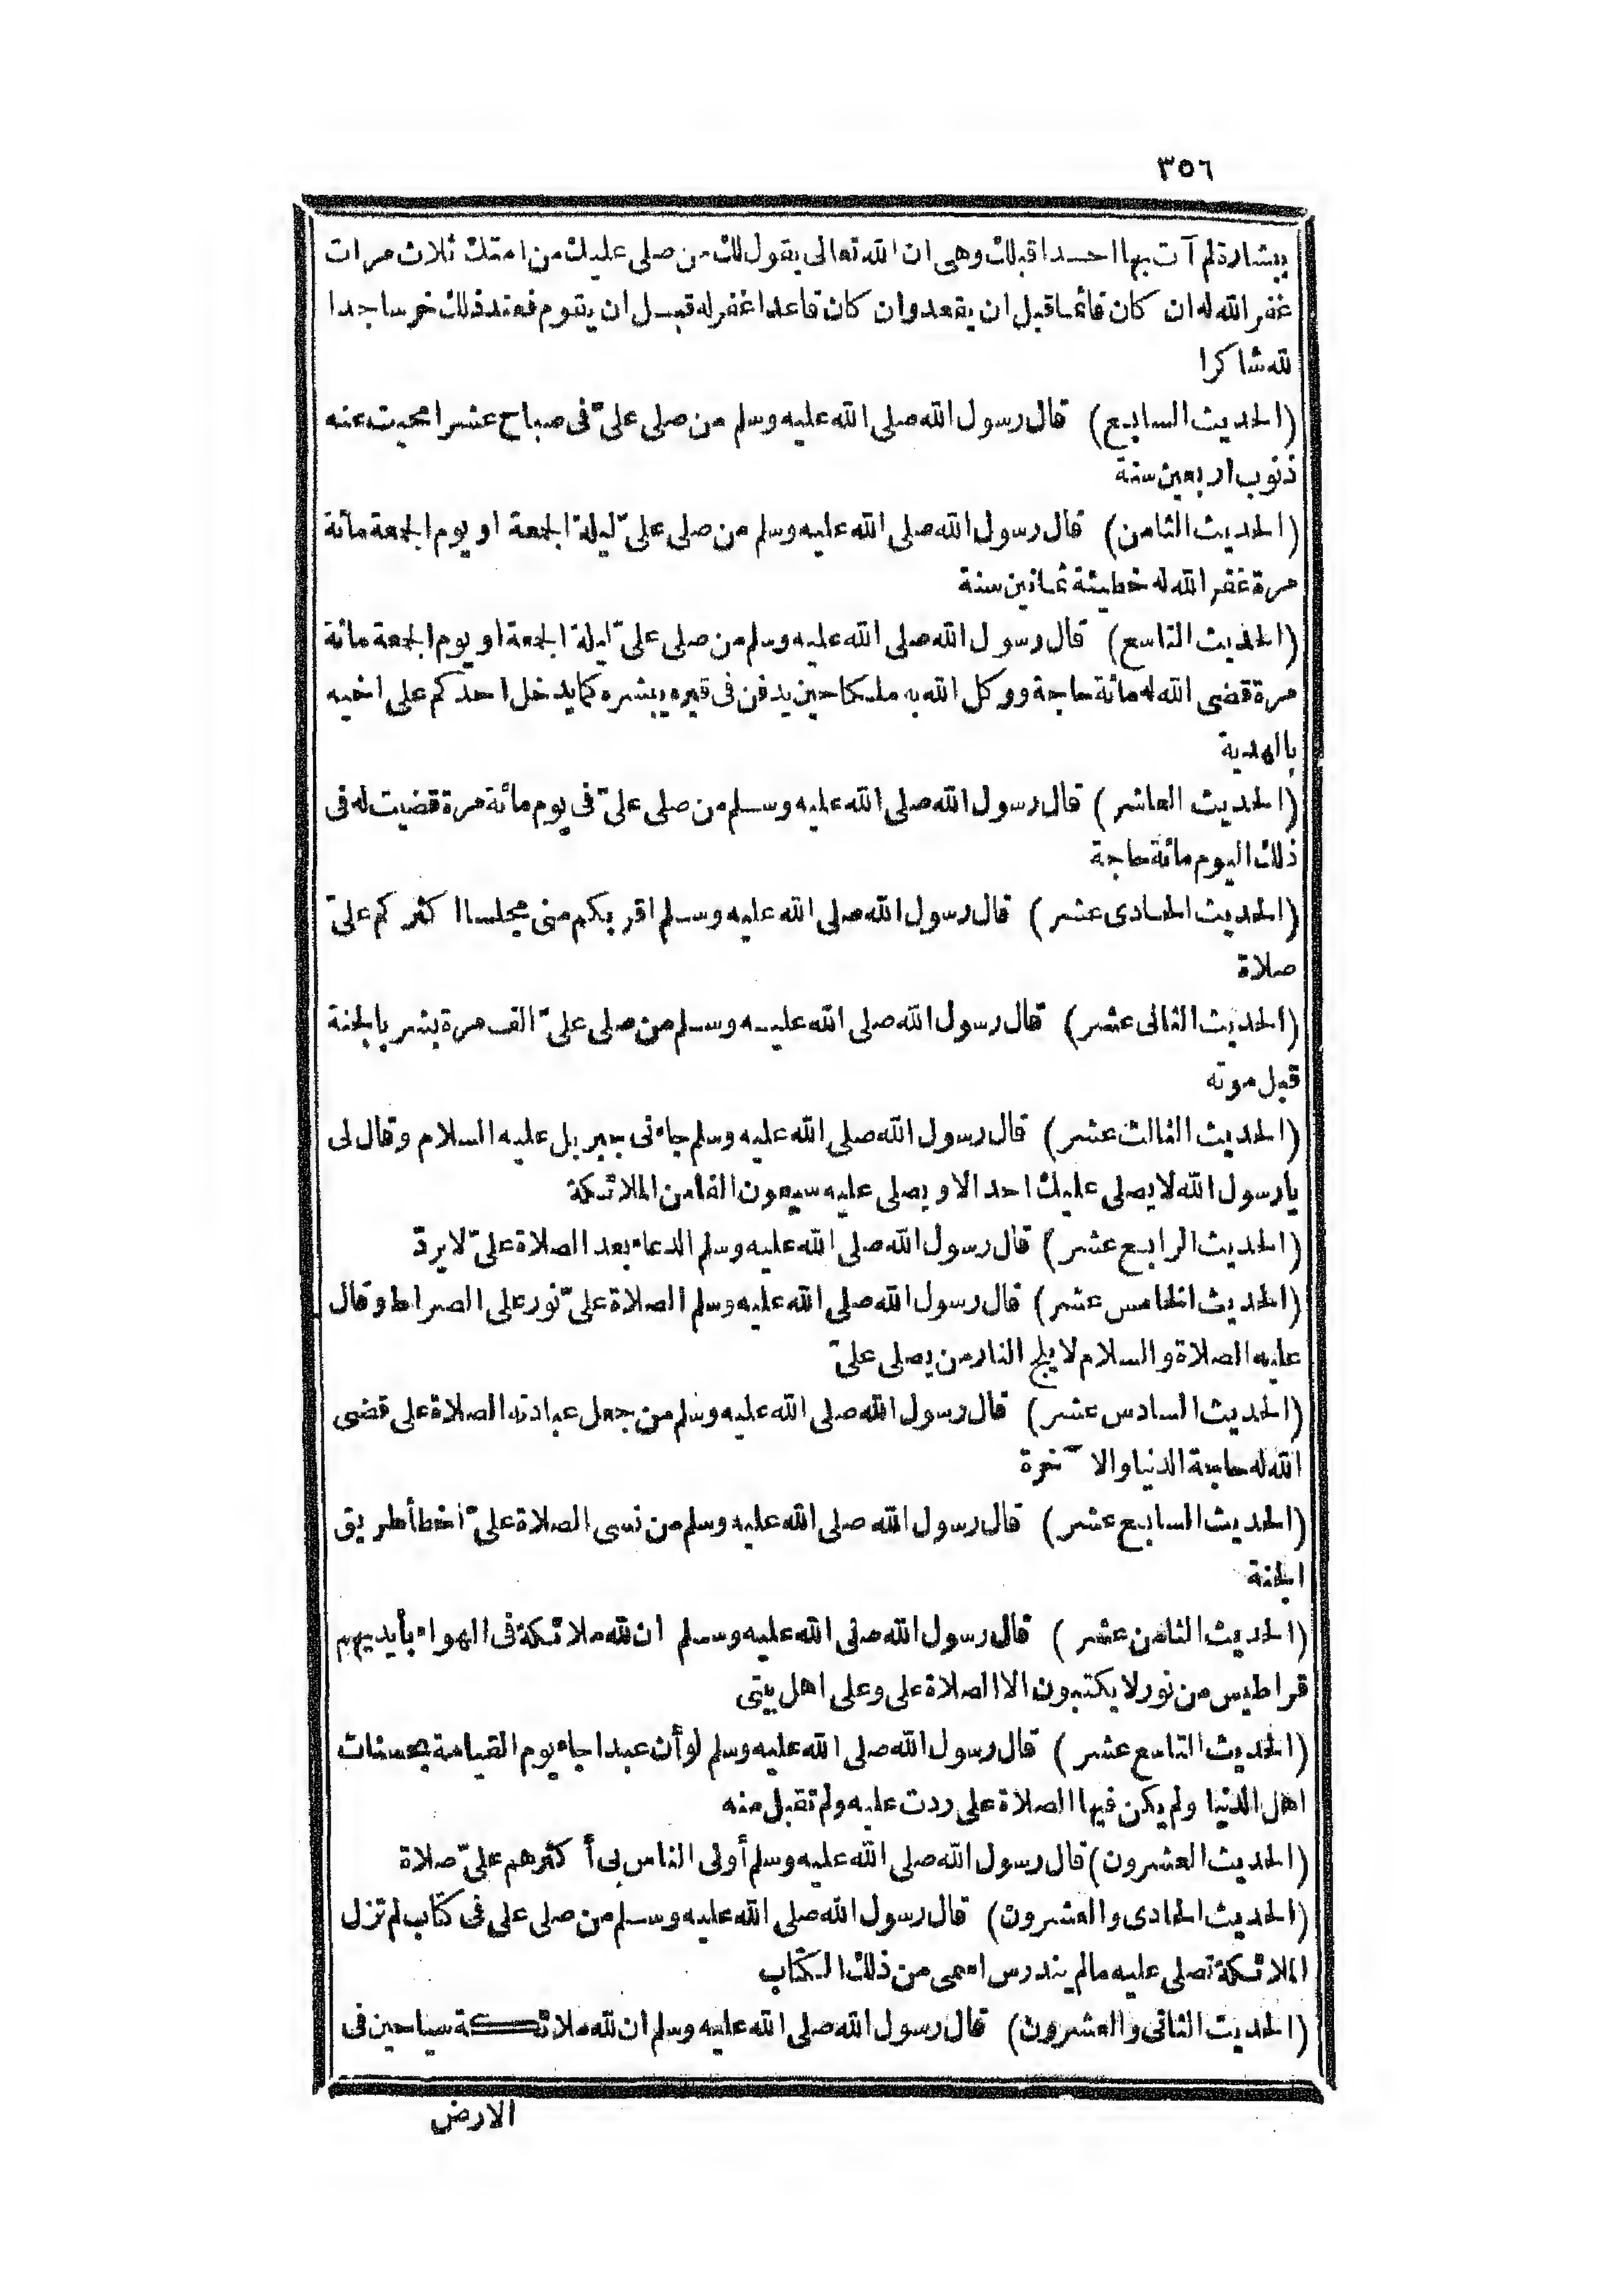 ٣٥٦
ببشارة لم آت بها احدا قبلك وهى ان الله تعالى يقول لك من صلى عليك من امتك ثلاث مرات
غفر الله له ان كان قائما قبل ان يقعد وان كان قاعدا غفر له قبل ان يقوم فعند ذلك خر ساجدا
لله شاكرا
(الحديث السابع) قال رسول الله صلى الله عليه وسلم من صلى علىّ فى صباح عشرا محيت عنه
ذنوب اربعين سنة
(الحديث الثامن) قال رسول الله صلى الله عليه وسلم من صلى علىّ ليلة الجمعة او يوم الجمعة مائة
مرة غفر الله له خطيئة ثمانين سنة
(الحديث التاسع) قال رسول الله صلى الله عليه وسلم من صلى علىّ ليلة الجمعة او يوم الجمعة مائة
مرة قضى الله له مائة حاجة ووكل الله به ملكا حين يدفن فى قبره يبشره كما يدخل احدكم على اخيه
بالهدية
(الحديث العاشر) قال رسول الله صلى الله عليه وسلم من صلى علىّ فى يوم مائة مرة قضيت له فى
ذلك اليوم مائة حاجة
(الحديث الحادى عشر) قال رسول الله صلى الله عليه وسلم اقربكم منى مجلسا اكثركم علىّ
صلاة
(الحديث الثانى عشر) قال رسول الله صلى الله عليه وسلم من صلى علىّ الف مرة بشر بالجنة
قبل موته
(الحديث الثالث عشر) قال رسول الله صلى الله عليه وسلم جاءنى جبريل عليه السلام وقال لى
يا رسول الله لا يصلى عليك احد الا ويصلى عليه سبعون الفا من الملائكة
(الحديث الرابع عشر) قال رسول الله صلى الله عليه وسلم الدعاء بعد الصلاة علىّ لا يردّ
(الحديث الخامس عشر) قال رسول الله صلى الله عليه وسلم الصلاة علىّ نور على الصراط وقال
عليه الصلاة والسلام لا يلج النار من يصلى علىّ
(الحديث السادس عشر) قال رسول الله صلى الله عليه وسلم من جعل عبادته الصلاة على قضى
الله له حاجة الدنيا والآخرة
(الحديث السابع عشر) قال رسول الله صلى الله عليه وسلم من نسى الصلاة علىّ اخطأ طريق
الجنة
(الحديث الثامن عشر) قال رسول الله صلى الله عليه وسلم ان لله ملائكة فى الهواء بأيديهم
قراطيس من نور لا يكتبون الا الصلاة على وعلى اهل بيتى
(الحديث التاسع عشر) قال رسول الله صلى الله عليه وسلم لو أن عبدا جاء يوم القيامة بحسنات
اهل الدنيا ولم يكن فيها الصلاة على ردت عليه ولم تقبل منه
(الحديث العشرون) قال رسول الله صلى الله عليه وسلم أولى الناس بى أكثرهم علىّ صلاة
(الحديث الحادى والعشرون) قال رسول الله صلى الله عليه وسلم من صلى على فى كتاب لم تزل
الملائكة تصلى عليه مالم يندرس اسمى من ذلك الكتاب
(الحديث الثانى والعشرون) قال رسول الله صلى الله عليه وسلم ان لله ملائكة سياحين فى
الارض